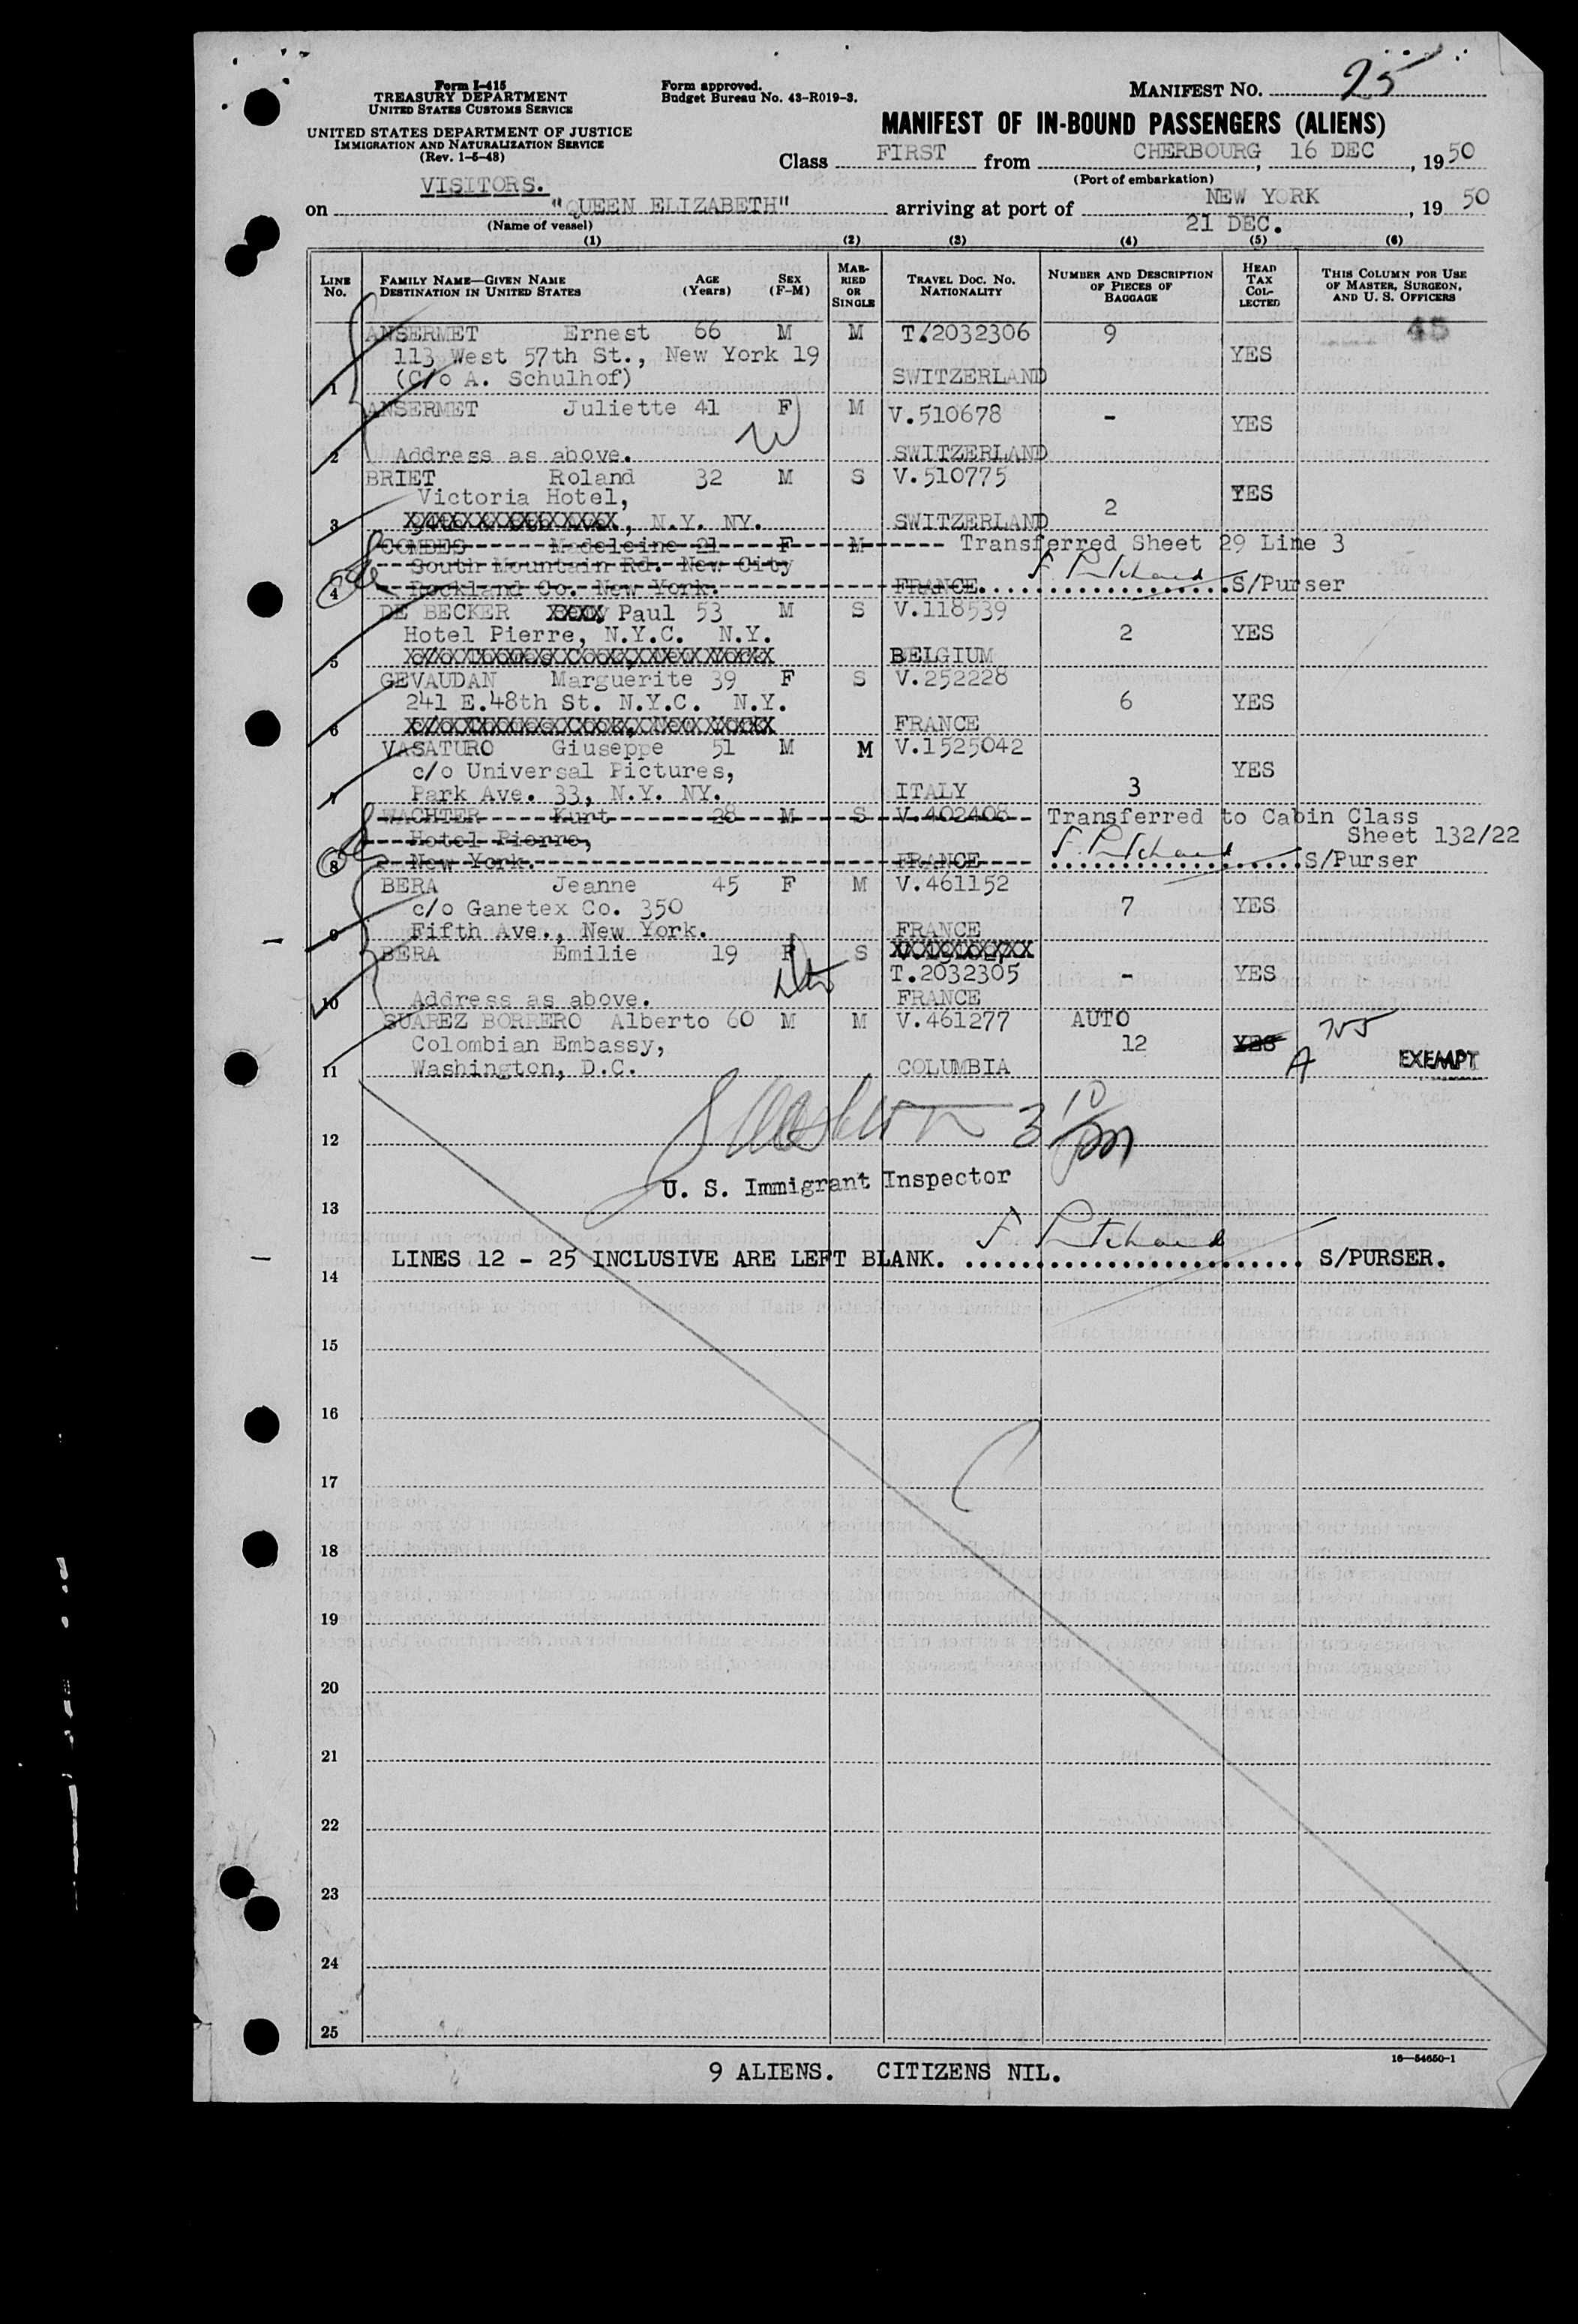 Form I-415
TREASURY DEPARTMENT
UNITED STATES CUSTOMS SERVICE
UNITED STATES DEPARTMENT OF JUSTICE
IMMIGRATION AND NATURALIZATION SERVICE
(Rev. 1-5-48)
Form approved.
Budget Bureau No. 43-R019-3.
MANIFEST No. 25
MANIFEST OF IN-BOUND PASSENGERS (ALIENS)
Class FIRST from CHERBOURG, 16 DEC, 1950
(Port of embarkation)
VISITORS.
on "QUEEN ELIZABETH" arriving at port of NEW YORK, 1950
(Name of vessel) 21 DEC.
(1) (2) (3) (4) (5) (6)
LINE No. FAMILY NAME—GIVEN NAME DESTINATION IN UNITED STATES AGE (Years) SEX (F-M) MARRIED OR SINGLE TRAVEL DOC. NO. NATIONALITY NUMBER AND DESCRIPTION OF PIECES OF BAGGAGE HEAD TAX COLLECTED THIS COLUMN FOR USE OF MASTER, SURGEON, AND U. S. OFFICERS
ANSERMET Ernest 66 M M T.2032306 9 45
113 West 57th St., New York 19 YES
1 (C/o A. Schulhof) SWITZERLAND
ANSERMET Juliette 41 F M V.510678 - YES
2 Address as above. SWITZERLAND
BRIET Roland 32 M S V.510775
Victoria Hotel, 2 YES
3 XXXXXXXXXXXXXXXXXX, N.Y. NY. SWITZERLAND
COMBES Madeleine 21 F M Transferred Sheet 29 Line 3
South Mountain Rd. New City F. Pritchard
4 Rockland Co. New York. FRANCE S/Purser
DE BECKER XXXX Paul 53 M S V.118539
Hotel Pierre, N.Y.C. N.Y. 2 YES
5 c/o Thomas Cook, New York BELGIUM
GEVAUDAN Marguerite 39 F S V.252228
241 E.48th St. N.Y.C. N.Y. 6 YES
6 c/o Thomas Cook, New York FRANCE
VASATURO Giuseppe 51 M M V.1525042
c/o Universal Pictures, YES
7 Park Ave. 33, N.Y. NY. ITALY 3
WACHTER Kurt 28 M S V.402408 Transferred to Cabin Class
Hotel Pierre, Sheet 132/22
8 New York. FRANCE F. Pritchard S/Purser
BERA Jeanne 45 F M V.461152
c/o Ganetex Co. 350 7 YES
9 Fifth Ave., New York. FRANCE
BERA Emilie 19 F S XXXXXXXXXX
T.2032305 - YES
10 Address as above. FRANCE
SUAREZ BORRERO Alberto 60 M M V.461277 AUTO
Colombian Embassy, 12 YES
11 Washington, D.C. COLUMBIA A EXEMPT
12 3 10 pm
U. S. Immigrant Inspector
13
F Pritchard
LINES 12 - 25 INCLUSIVE ARE LEFT BLANK. S/PURSER.
14
15
16
17
18
19
20
21
22
23
24
25
16—54650-1
9 ALIENS. CITIZENS NIL.